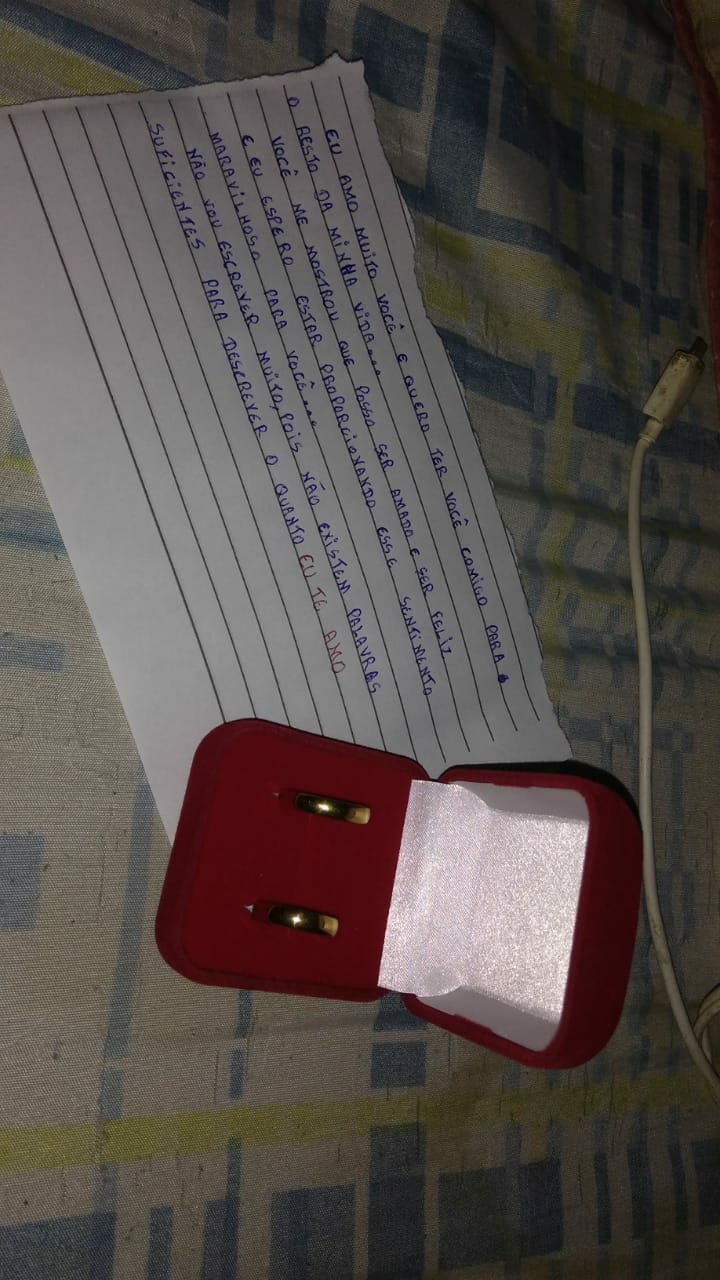 EU AMO MUITO VOCÊ E QUERO TER VOCÊ COMIGO PARA
O RESTO DA MINHA VIDA...
VOCÊ ME MOSTROU QUE POSSO SER AMADO E SER FELIZ
E EU ESPERO ESTAR PROPORCIONANDO ESSE SENTIMENTO
MARAVILHOSO PARA VOCÊ...
NÃO VOU ESCREVER MUITO, POIS NÃO EXISTEM PALAVRAS
SUFICIENTES PARA DESCREVER O QUANTO EU TE AMO